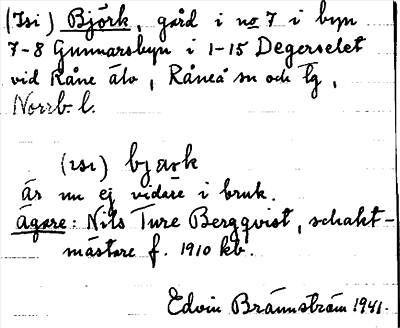 (Isi) Björk, gård i no 7 i byn
7-8 Gunnarsbyn i 1-15 Degerselet
vid Råne älv, Råneå sn och tg,
Norrb. l.
(ısı) bjærk
är nu ej vidare i bruk.
Ägare: Nils Ture Bergqvist, schakt-
mästare f. 1910 kb.
Edvin Brännström 1941.